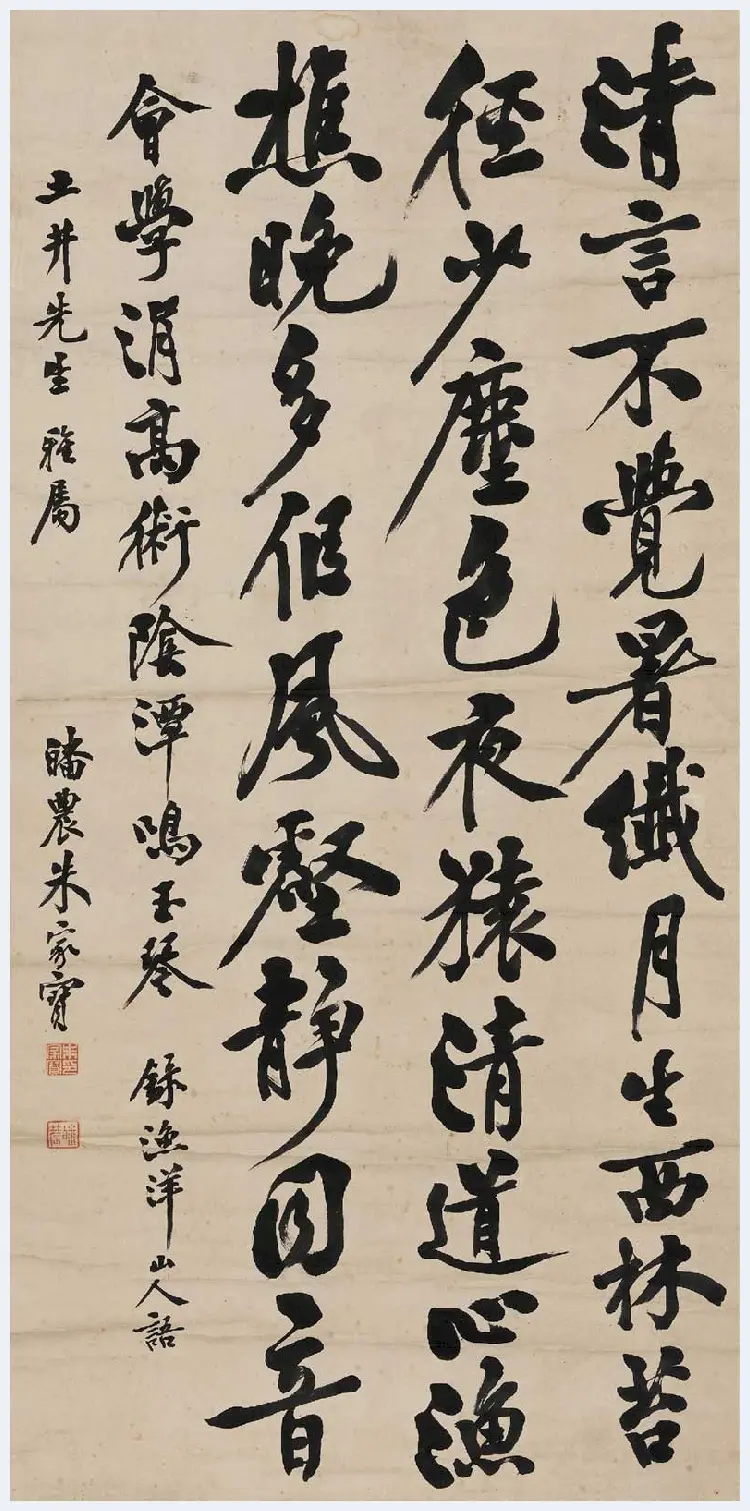 清言不覺暑纖月生西林苔
徑少塵色夜猿清道心漁
樵晚多侶風壑靜同音
會學涓高術陰潭鳴玉琴 錄漁洋山人語
土井先生 雅屬
農朱家寶